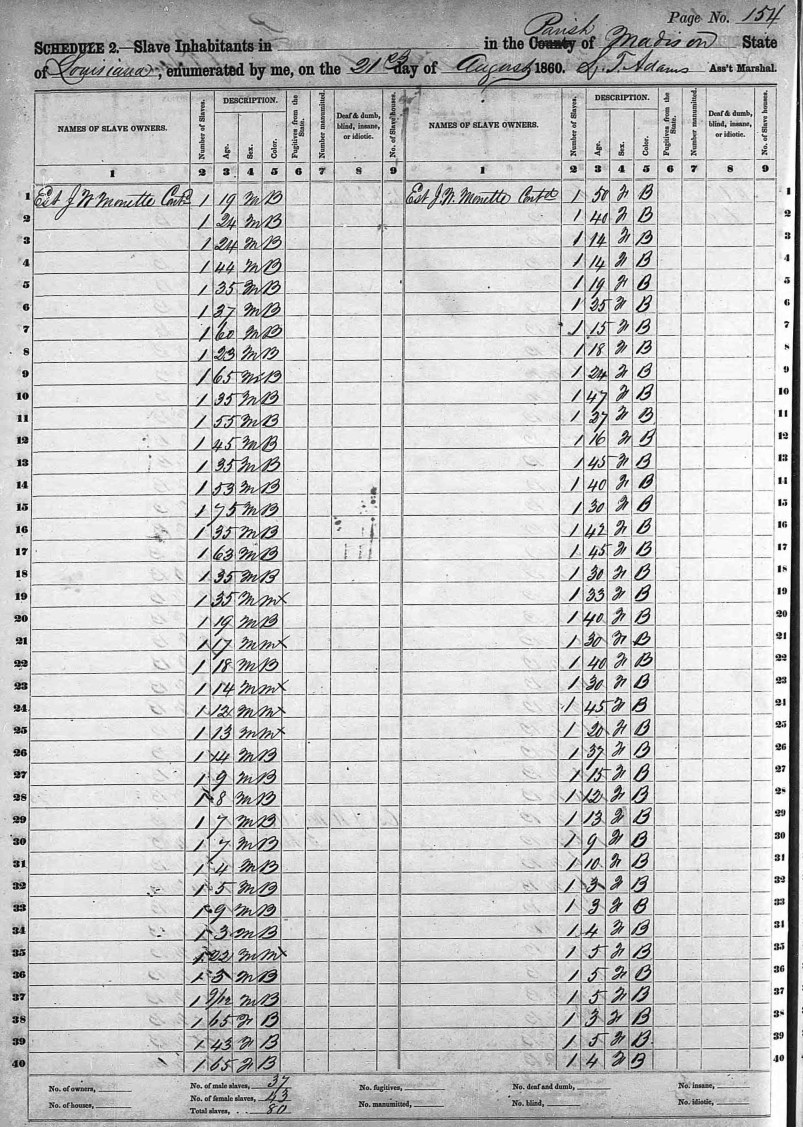 Page No. 154
SCHEDULE 2.—Slave Inhabitants in in the County Parish of Madison State
of Louisiana, enumerated by me, on the 21st day of August 1860. L. T. Adams Ass't Marshal.
NAMES OF SLAVE OWNERS. Number of Slaves. DESCRIPTION. Age. Sex. Color. Fugitives from the State. Number manumitted. Deaf & dumb, blind, insane, or idiotic. No. of Slave houses. NAMES OF SLAVE OWNERS. Number of Slaves. DESCRIPTION. Age. Sex. Color. Fugitives from the State. Number manumitted. Deaf & dumb, blind, insane, or idiotic. No. of Slave houses.
1 2 3 4 5 6 7 8 9 1 2 3 4 5 6 7 8 9
1 Est J W Monette Contd 1 19 M B Est J. W. Monette Contd 1 50 F B 1
2 1 24 M B 1 40 F B 2
3 1 24 M B 1 14 F B 3
4 1 44 M B 1 14 F B 4
5 1 35 M B 1 19 F B 5
6 1 37 M B 1 25 F B 6
7 1 60 M B 1 15 F B 7
8 1 23 M B 1 18 F B 8
9 1 65 M B 1 24 F B 9
10 1 35 M B 1 47 F B 10
11 1 55 M B 1 37 F B 11
12 1 45 M B 1 16 F B 12
13 1 35 M B 1 45 F B 13
14 1 53 M B 1 40 F B 14
15 1 75 M B 1 30 F B 15
16 1 35 M B 1 42 F B 16
17 1 63 M B 1 45 F B 17
18 1 35 M B 1 30 F B 18
19 1 35 M M 1 33 F B 19
20 1 19 M B 1 40 F B 20
21 1 17 M M 1 30 F B 21
22 1 18 M B 1 40 F B 22
23 1 14 M M 1 30 F B 23
24 1 12 M M 1 45 F B 24
25 1 13 M M 1 20 F B 25
26 1 14 M B 1 37 F B 26
27 1 9 M B 1 15 F B 27
28 1 8 M B 1 12 F B 28
29 1 7 M B 1 13 F B 29
30 1 7 M B 1 9 F B 30
31 1 4 M B 1 10 F B 31
32 1 5 M B 1 3 F B 32
33 1 9 M B 1 3 F B 33
34 1 3 M B 1 4 F B 34
35 1 22 M M 1 5 F B 35
36 1 3 M B 1 5 F B 36
37 1 9/12 M B 1 5 F B 37
38 1 65 F B 1 3 F B 38
39 1 43 F B 1 5 F B 39
40 1 65 F B 1 4 F B 40
No. of owners, No. of male slaves, 37 No. fugitives, No. deaf and dumb, No. insane,
No. of houses, No. of female slaves, 43 No. manumitted, No. blind, No. idiotic,
Total slaves, 80